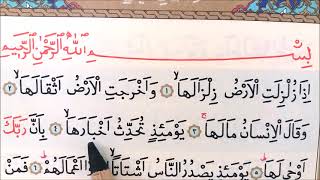 بِسْمِ اللّٰهِ الرَّحْمٰنِ الرَّحِيْمِ
اِذَا زُلْزِلَتِ الْاَرْضُ زِلْزَالَهَا ۙ ۝١ وَاَخْرَجَتِ الْاَرْضُ اَثْقَالَهَا ۙ ۝٢
وَقَالَ الْاِنْسَانُ مَالَهَا ۚ ۝٣ يَوْمَئِذٍ تُحَدِّثُ اَخْبَارَهَا ۙ ۝٤ بِاَنَّ رَبَّكَ
اَوْحٰى لَهَا ؕ ۝٥ يَوْمَئِذٍ يَّصْدُرُ النَّاسُ اَشْتَاتًا ۙ اَعْمَالَهُمْ ؕ ۝٦ فَمَنْ